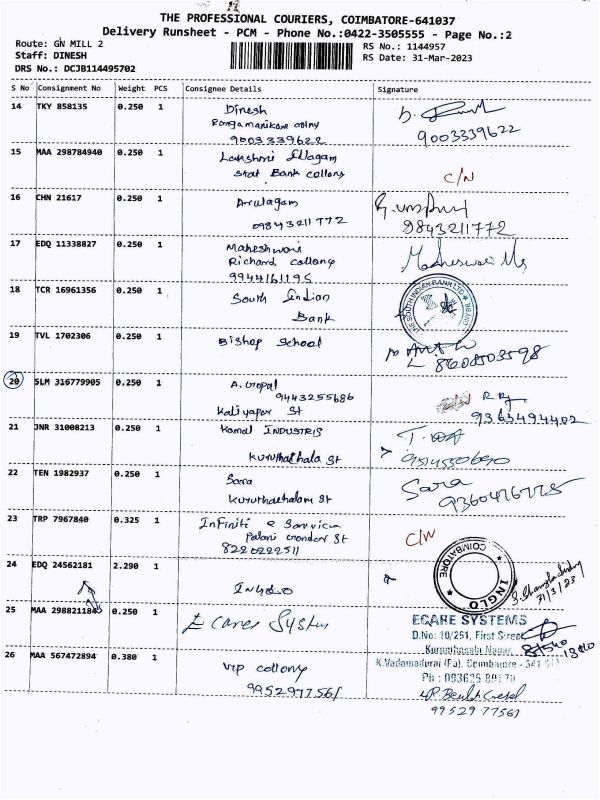 THE PROFESSIONAL COURIERS, COIMBATORE-641037
Delivery Runsheet - PCM - Phone No.:0422-3505555 - Page No.:2
Route: GN MILL 2
RS No.: 1144957
Staff: DINESH
RS Date: 31-Mar-2023
DRS No.: DCJB114495702
S No Consignment No Weight PCS Consignee Details Signature
14 TKY 858135 0.250 1 Dinesh
9003339622
9003339622
15 MAA 298784940 0.250 1 Lakshmi
Stat Bank collony
C/N
16 CHN 21617 0.250 1 Arulagam
09843211772
9843211772
17 EDQ 11338827 0.250 1 Maheshwari
Richard collony
9944161195
18 TCR 16961356 0.250 1 South Indian
Bank
THE SOUTH INDIAN BANK LTD
19 TVL 1702306 0.250 1 Bishop School
8608503598
20 SLM 316779905 0.250 1 A. Gopal
9443255686
Kaliyapar St
9363494402
21 JNR 31008213 0.250 1 Kamal INDUSTRIS
Kuruthathala St
22 TEN 1982937 0.250 1 Sara
Kuruthathalam St
Sara
23 TRP 7967840 0.325 1 Infiniti
St
8220222511
C/N
24 EDQ 24562181 2.290 1
COIMBATORE
INGLO
31/3/23
25 MAA 298821184 0.250 1 E Cares System
ECARE SYSTEMS
D.No: 10/251, First Street
Kuruthasala Nagar
K.Vadamadurai (Po), Coimbatore - 641
26 MAA 567472894 0.380 1 VIP collony
9952977561
99529 77561